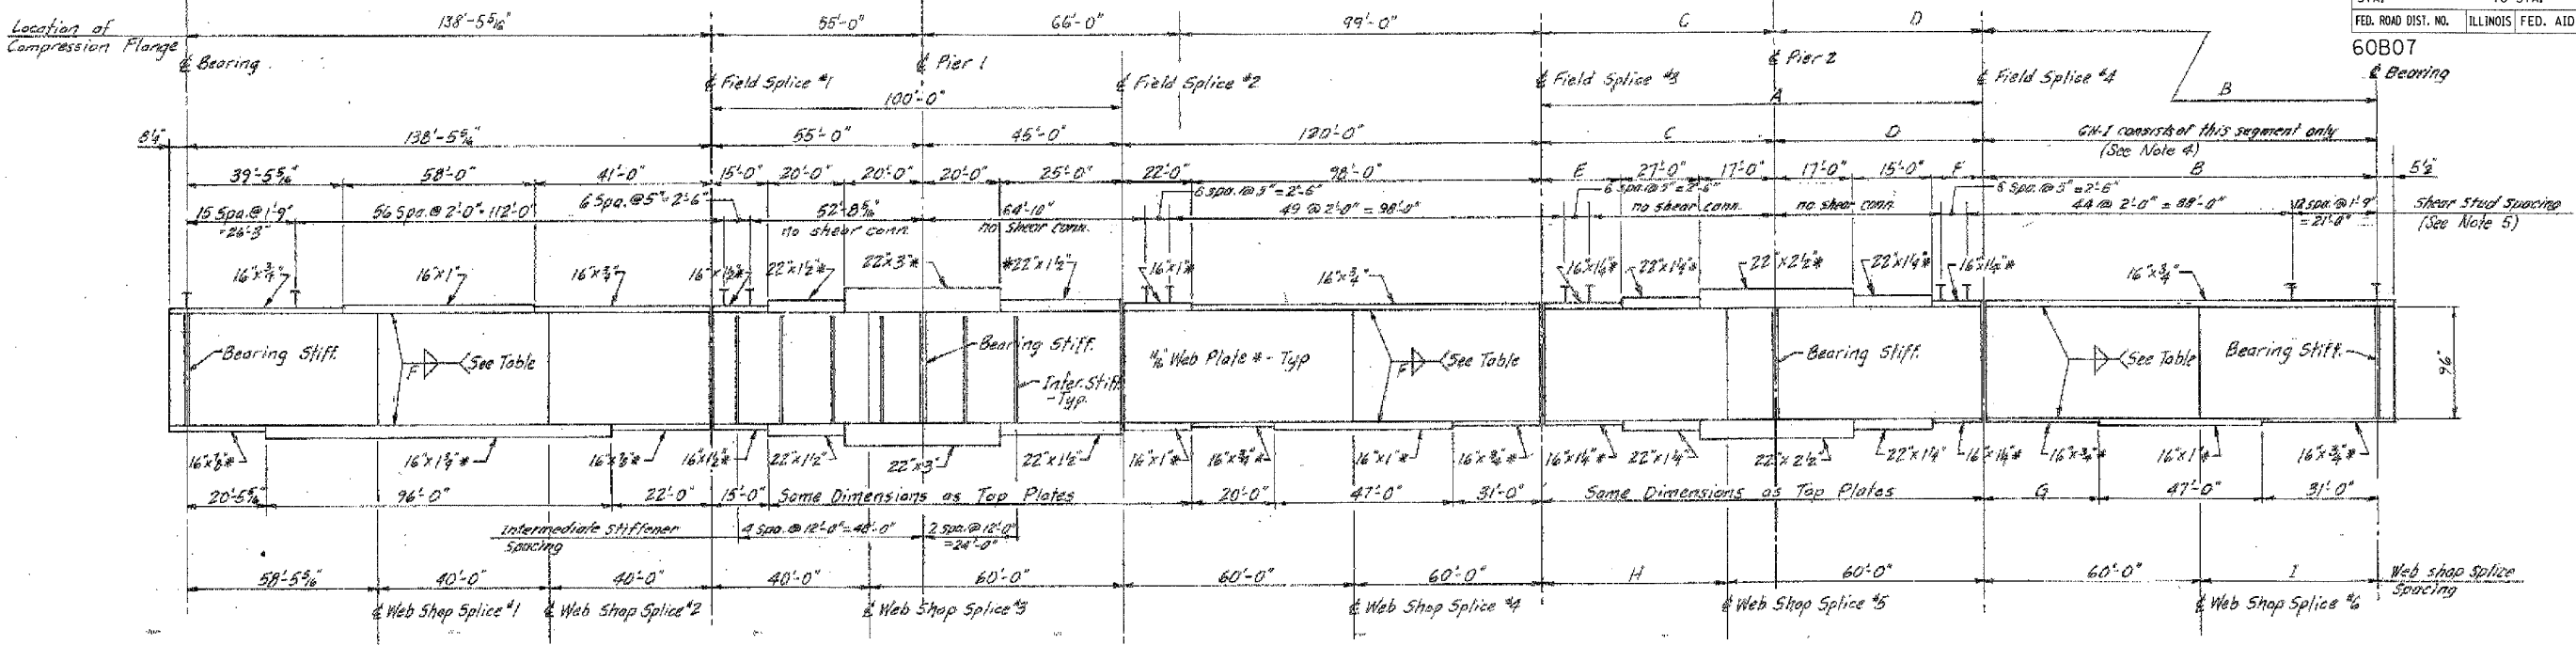 STA. TO STA.
FED. ROAD DIST. NO. ILLINOIS FED. AID
60B07
Location of Compression Flange
138'-5 5/16" 55'-0" 66'-0" 99'-0" C D
℄ Bearing ℄ Pier 1 ℄ Pier 2 ℄ Bearing
℄ Field Splice #1 ℄ Field Splice #2 ℄ Field Splice #3 ℄ Field Splice #4
100'-0" A B
138'-5 5/16" 55'-0" 45'-0" 120'-0" C D GN-1 consists of this segment only
(See Note 4)
39'-5 5/16" 58'-0" 41'-0" 15'-0" 20'-0" 20'-0" 20'-0" 25'-0" 22'-0" 98'-0" E 27'-0" 17'-0" 17'-0" 15'-0" F B 5½"
15 Spa. @ 1'-9" 56 Spa. @ 2'-0" = 112'-0" 6 Spa. @ 5" = 2'-6" 52'-8 5/16" 64'-10" 6 spa. @ 5" = 2'-6" 49 @ 2'-0" = 98'-0" 6 spa. @ 5" = 2'-6" no shear conn. no shear conn. 6 Spa. @ 5" = 2'-6" 44 @ 2'-0" = 88'-0" 12 spa. @ 1'-9" Shear Stud Spacing
= 26'-3" no shear conn. no shear conn. = 21'-0" (See Note 5)
16"x¾" 16"x1" 16"x¾" 16"x1½"* 22"x1½"* 22"x3"* *22"x1½" 16"x1"* 16"x¾" 16"x1¼"* 22"x1¼"* 22"x2½"* 22"x1¼"* 16"x¾"
Bearing Stiff. F See Table Bearing Stiff. Inter. Stiff. - Typ. Web Plate * - Typ F See Table Bearing Stiff. See Table Bearing Stiff. 96"
16"x1½"* 22"x1½" 22"x3" 22"x1½" 16"x1"* 16"x¾"* 16"x1"* 16"x¾"* 16"x1¼"* 22"x1¼" 22"x2½" 22"x1¼" 16"x1¼"* 16"x¾"* 16"x1"* 16"x¾"*
20'-5 5/16" 96'-0" 22'-0" 15'-0" Same Dimensions as Top Plates 20'-0" 47'-0" 31'-0" Same Dimensions as Top Plates G 47'-0" 31'-0"
Intermediate Stiffener Spacing 4 Spa. @ 12'-0" = 48'-0" 2 Spa. @ 12'-0" = 24'-0"
58'-5 5/16" 40'-0" 40'-0" 40'-0" 60'-0" 60'-0" 60'-0" H 60'-0" 60'-0" I Web shop Splice Spacing
℄ Web Shop Splice #1 ℄ Web Shop Splice #2 ℄ Web Shop Splice #3 ℄ Web Shop Splice #4 ℄ Web Shop Splice #5 ℄ Web Shop Splice #6